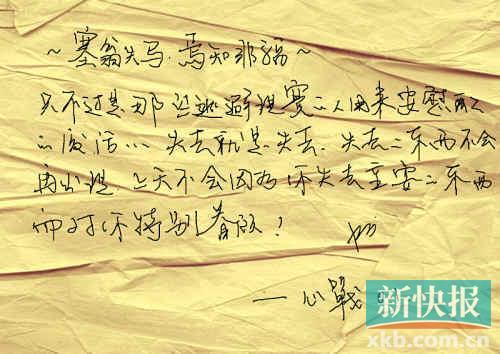 ~塞翁失马.焉知非福~
只不过是那些逃避现实的人用来安慰自己
的废话…失去就是失去.失去的东西不会
再出现.上天不会因为你失去重要的东西
而对你特别眷顾!
—心战
新快报
xkb.com.cn